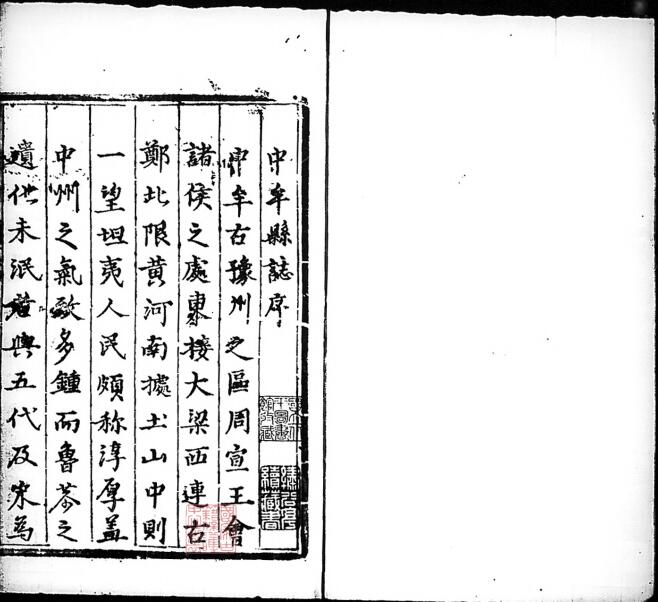 中牟縣誌序
中牟古豫州之區周宣王會
諸侯之處東接大梁西連古
鄭北限黃河南據土山中則
一望坦夷人民頗称淳厚盖
中州之氣㪽多鍾而魯恭之
遺化未泯黄輿五代及宋為